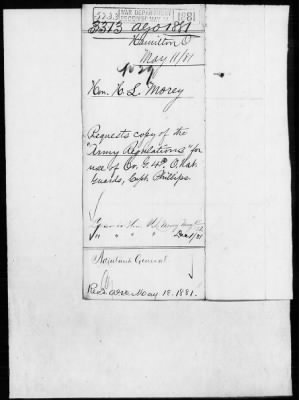 5233 WAR DEPARTMENT RECEIVED MAY 1881
3373 AGO 1881
Hamilton O
May 11/81
Hon. H. L. Morey
Requests copy of the
"Army Regulations" for
use of Co. G. 4th O. Nat.
Guards, Capt. Phillips.
" " " " Dec 1/81
Adjutant General
Rec'd AGO May 18. 1881.